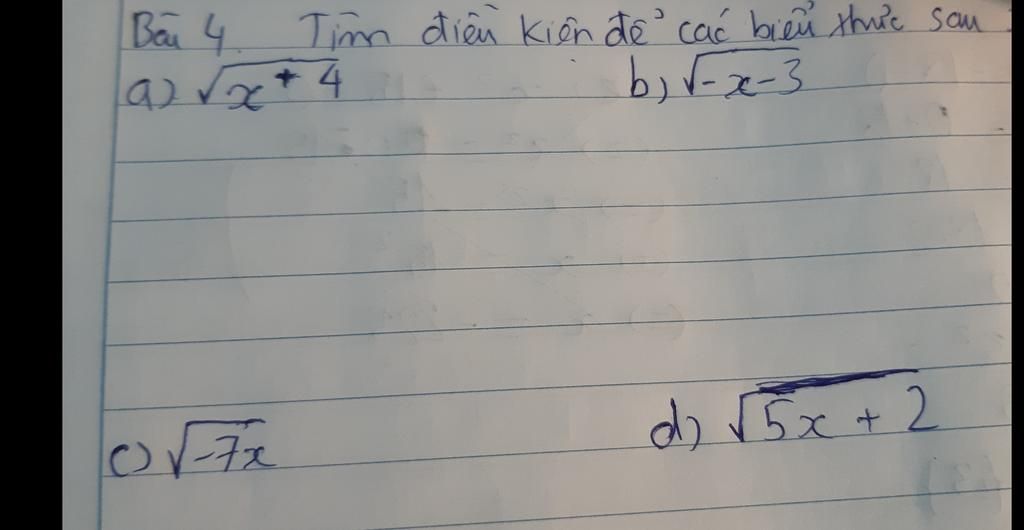 Bài 4. Tìm điều kiên để các biểu thức sau :
a) √x + 4 b) √-x-3
c) √-7x d) √5x + 2